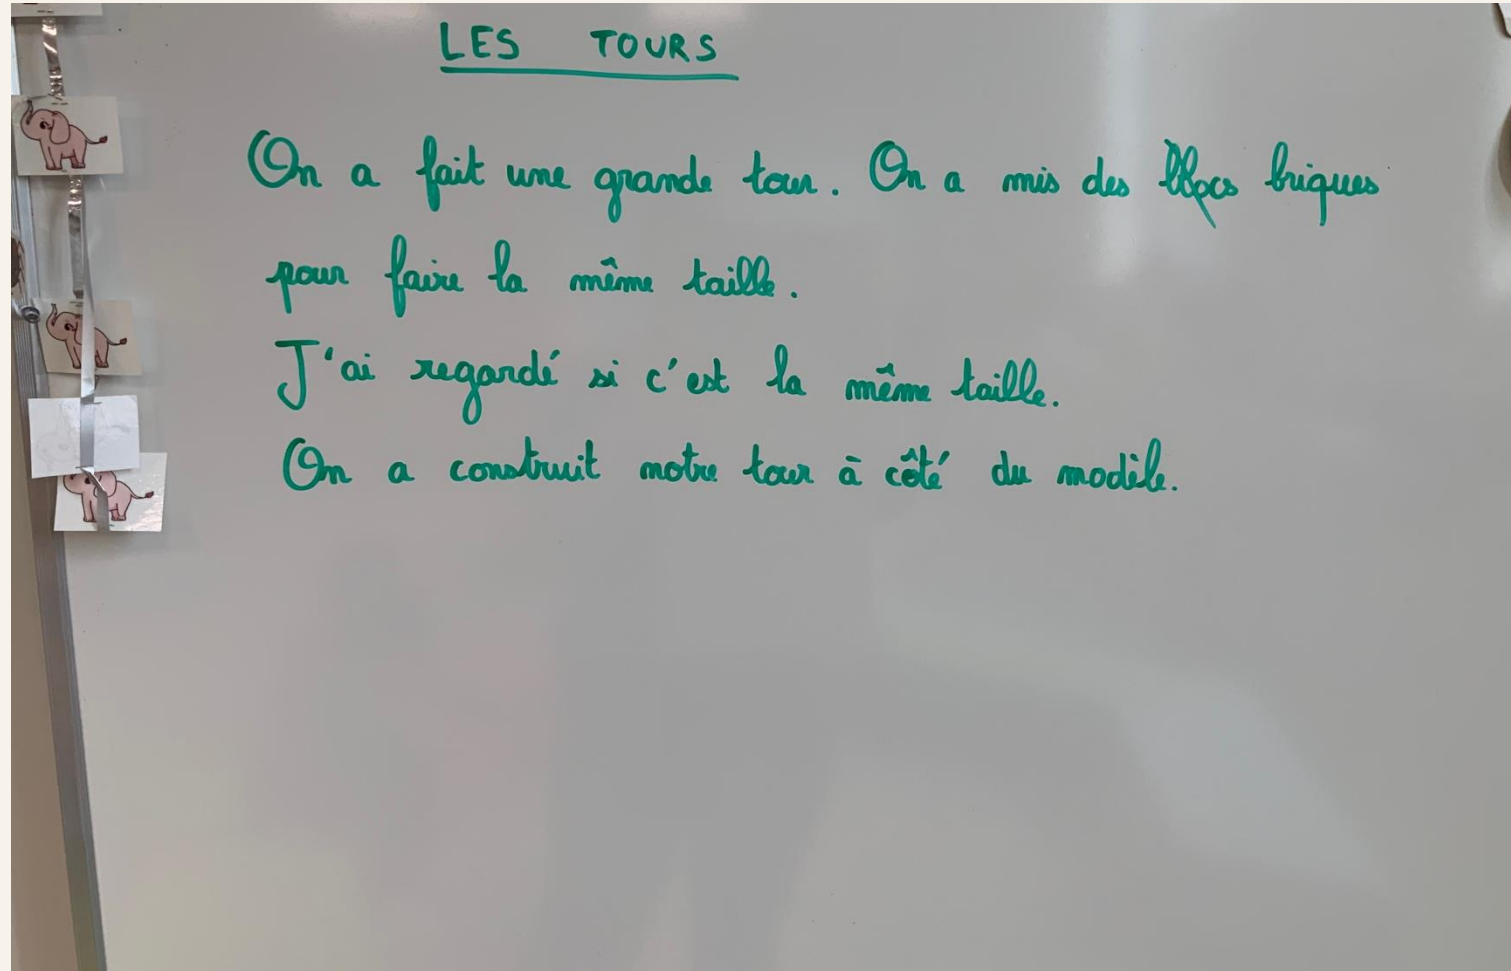 LES TOURS
On a fait une grande tour. On a mis des blocs briques
pour faire la même taille.
J'ai regardé si c'est la même taille.
On a construit notre tour à côté du modèle.